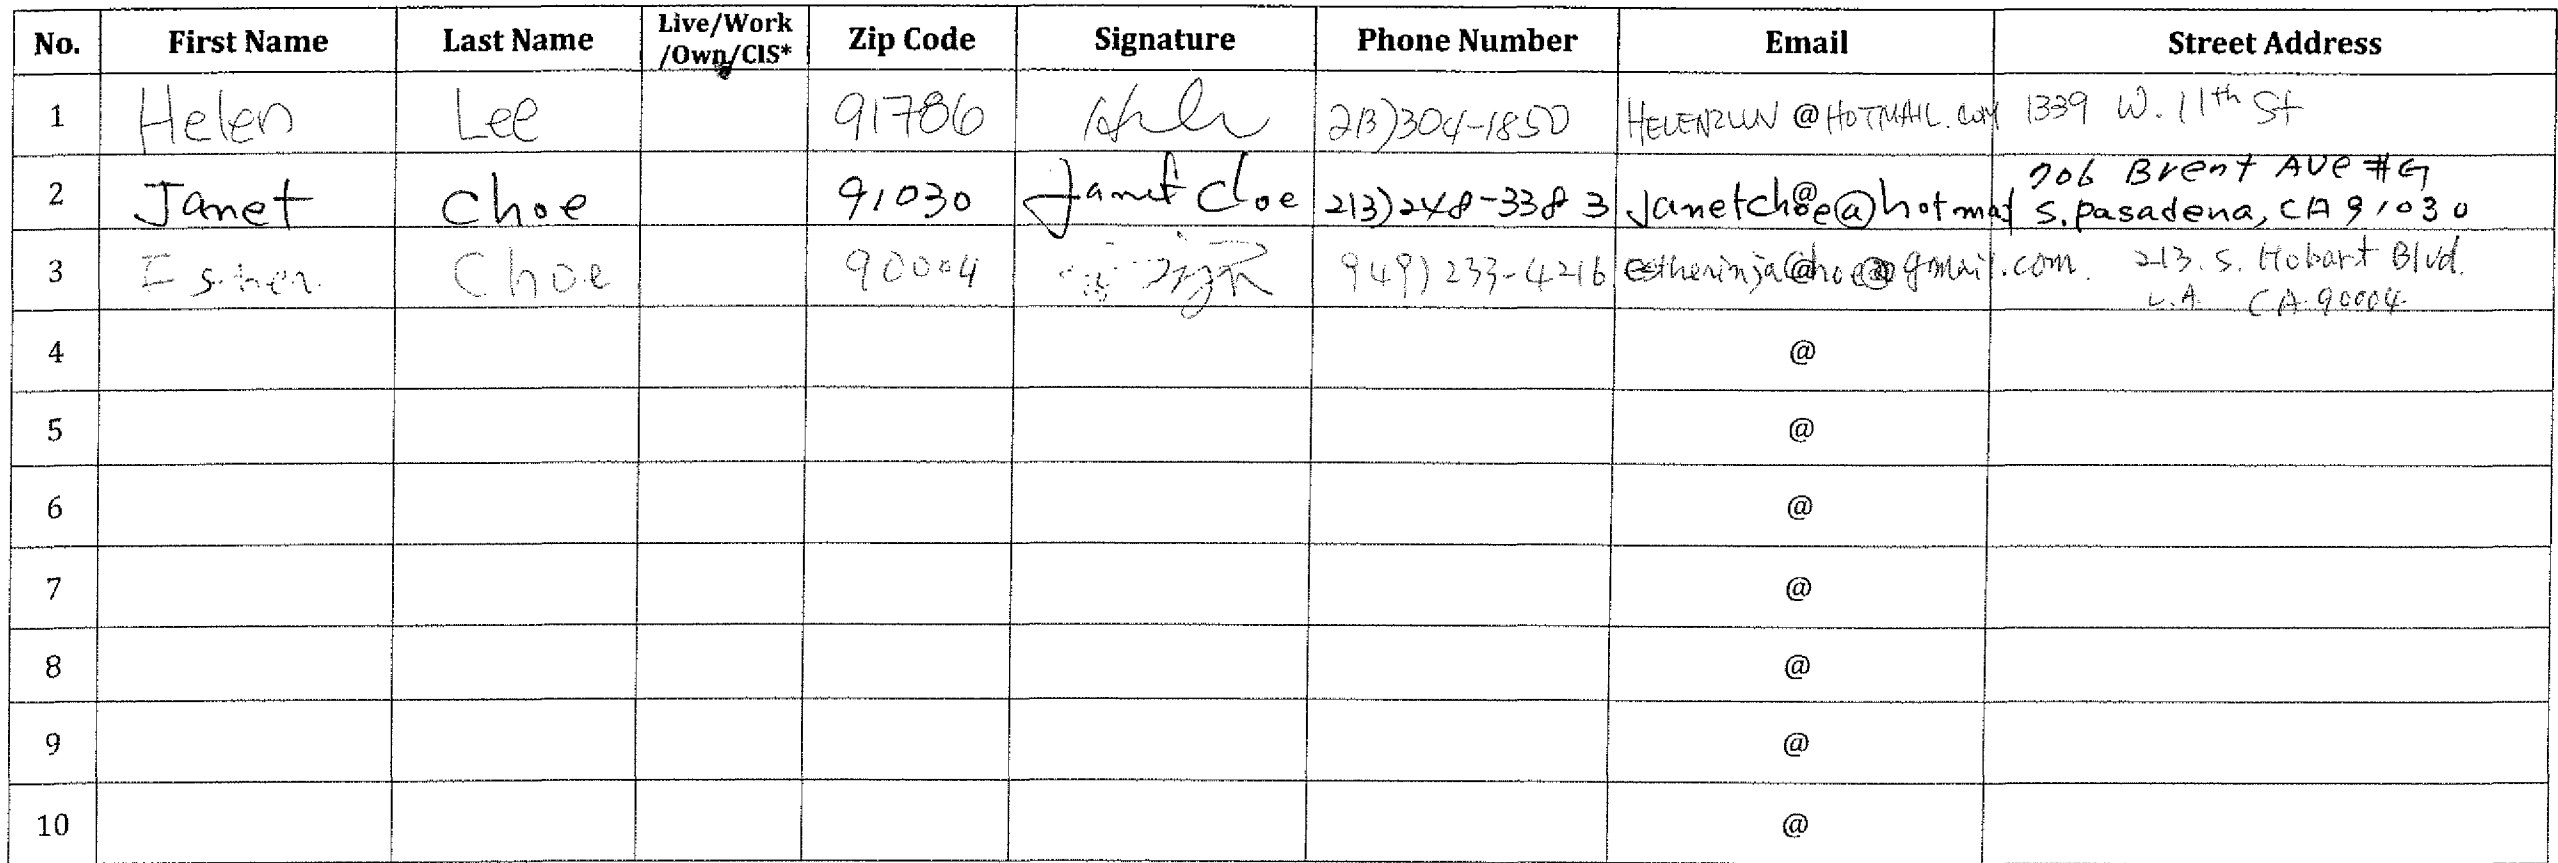 No. First Name Last Name Live/Work /Own/CIS* Zip Code Signature Phone Number Email Street Address
1 Helen Lee 91786 213)304-1850 @HOTMAIL.COM 1339 W. 11th St
2 Janet Choe 91030 Janet Choe 213)248-3383 Janetchoe@hotmai 706 Brent Ave #G
S. Pasadena, CA 91030
3 Esther Choe 90004 949)233-4216 estherinjachoe@gmail.com. 213. S. Hobart Blvd.
L.A. CA 90004
4 @
5 @
6 @
7 @
8 @
9 @
10 @